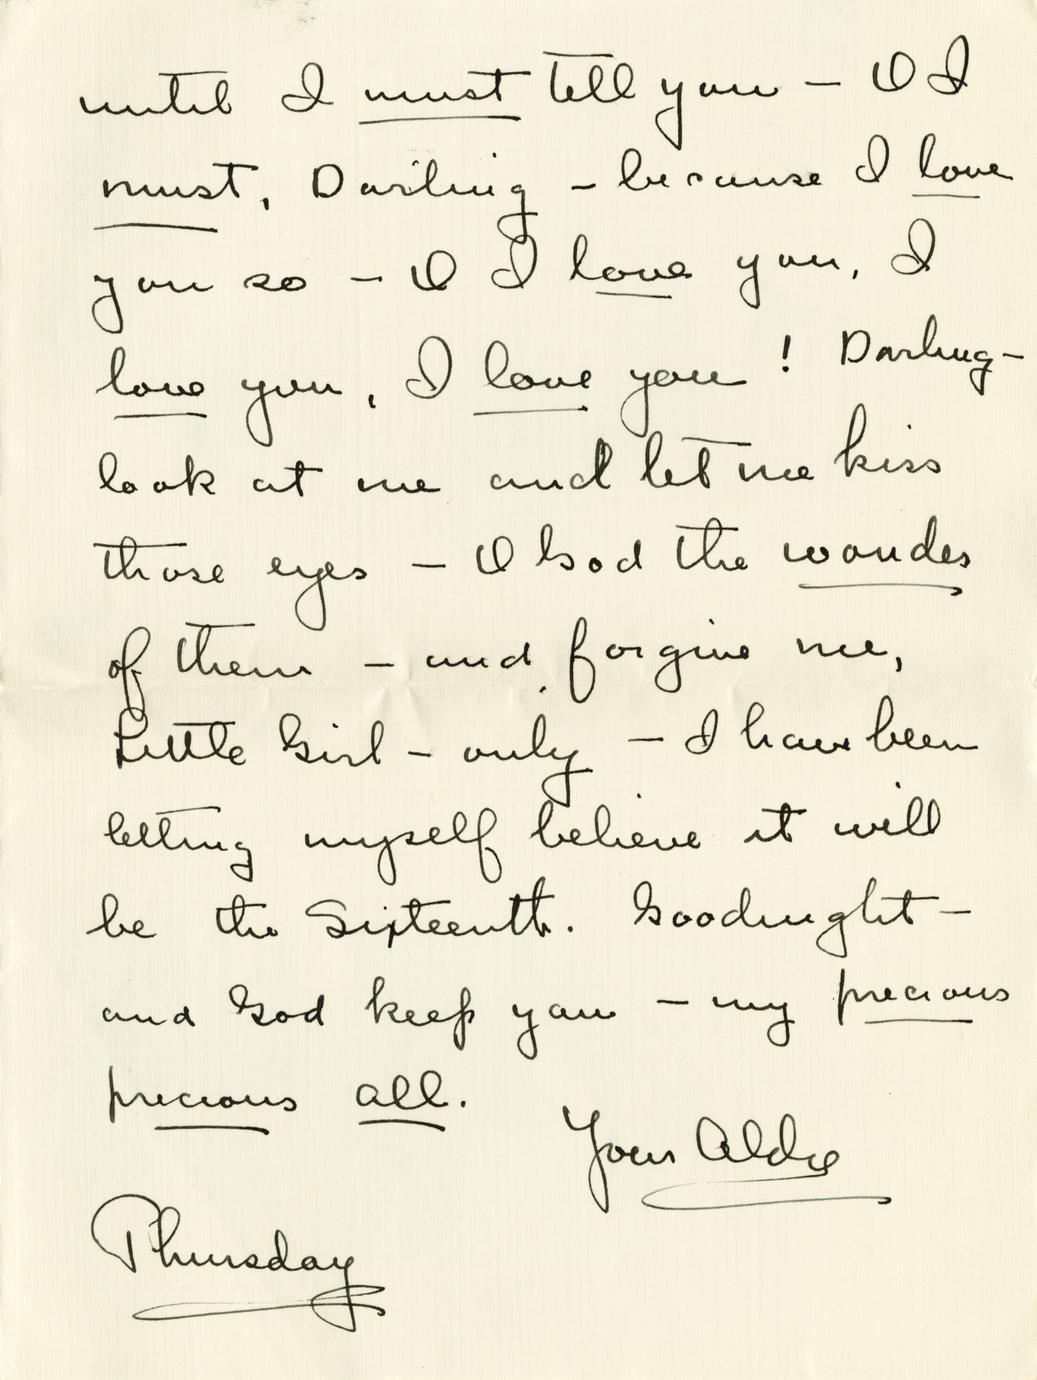 until I must tell you – O I
must, Darling – because I love
you so – O I love you, I
love you, I love you! Darling –
look at me and let me kiss
those eyes – O God the wonder
of them – and forgive me,
Little Girl – only – I have been
letting myself believe it will
be the Sixteenth. Goodnight –
and God keep you – my precious
precious all.
Your Aldie
Thursday